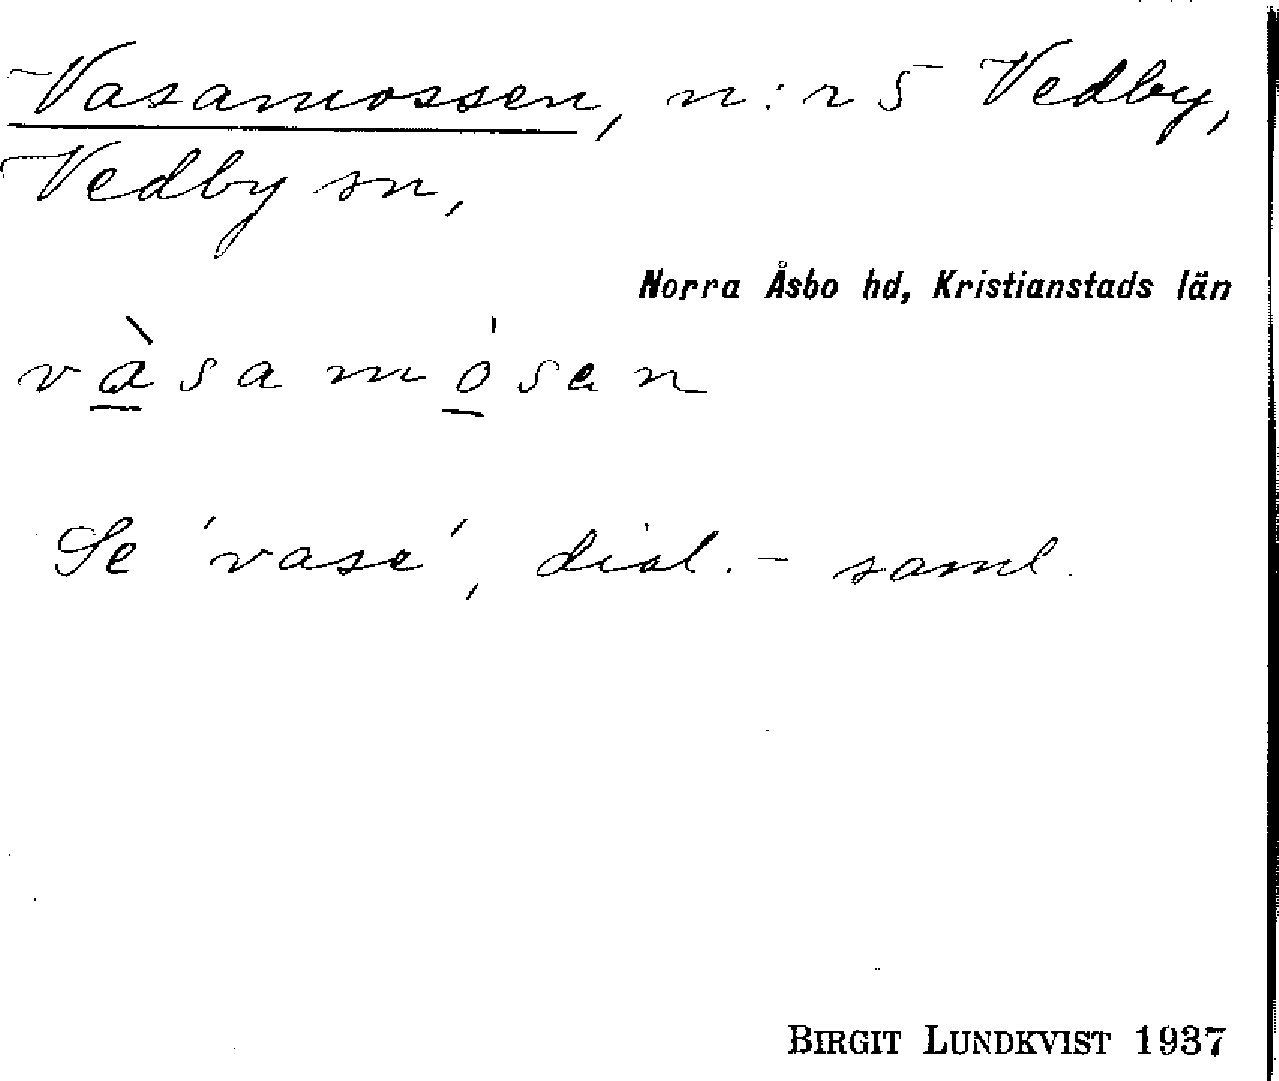 Vasamossen, n:r 5 Vedby,
Vedby sn,
Norra Åsbo hd, Kristianstads län
và̱samó̱sen
Se 'vase', dial.- saml.
BIRGIT LUNDKVIST 1937